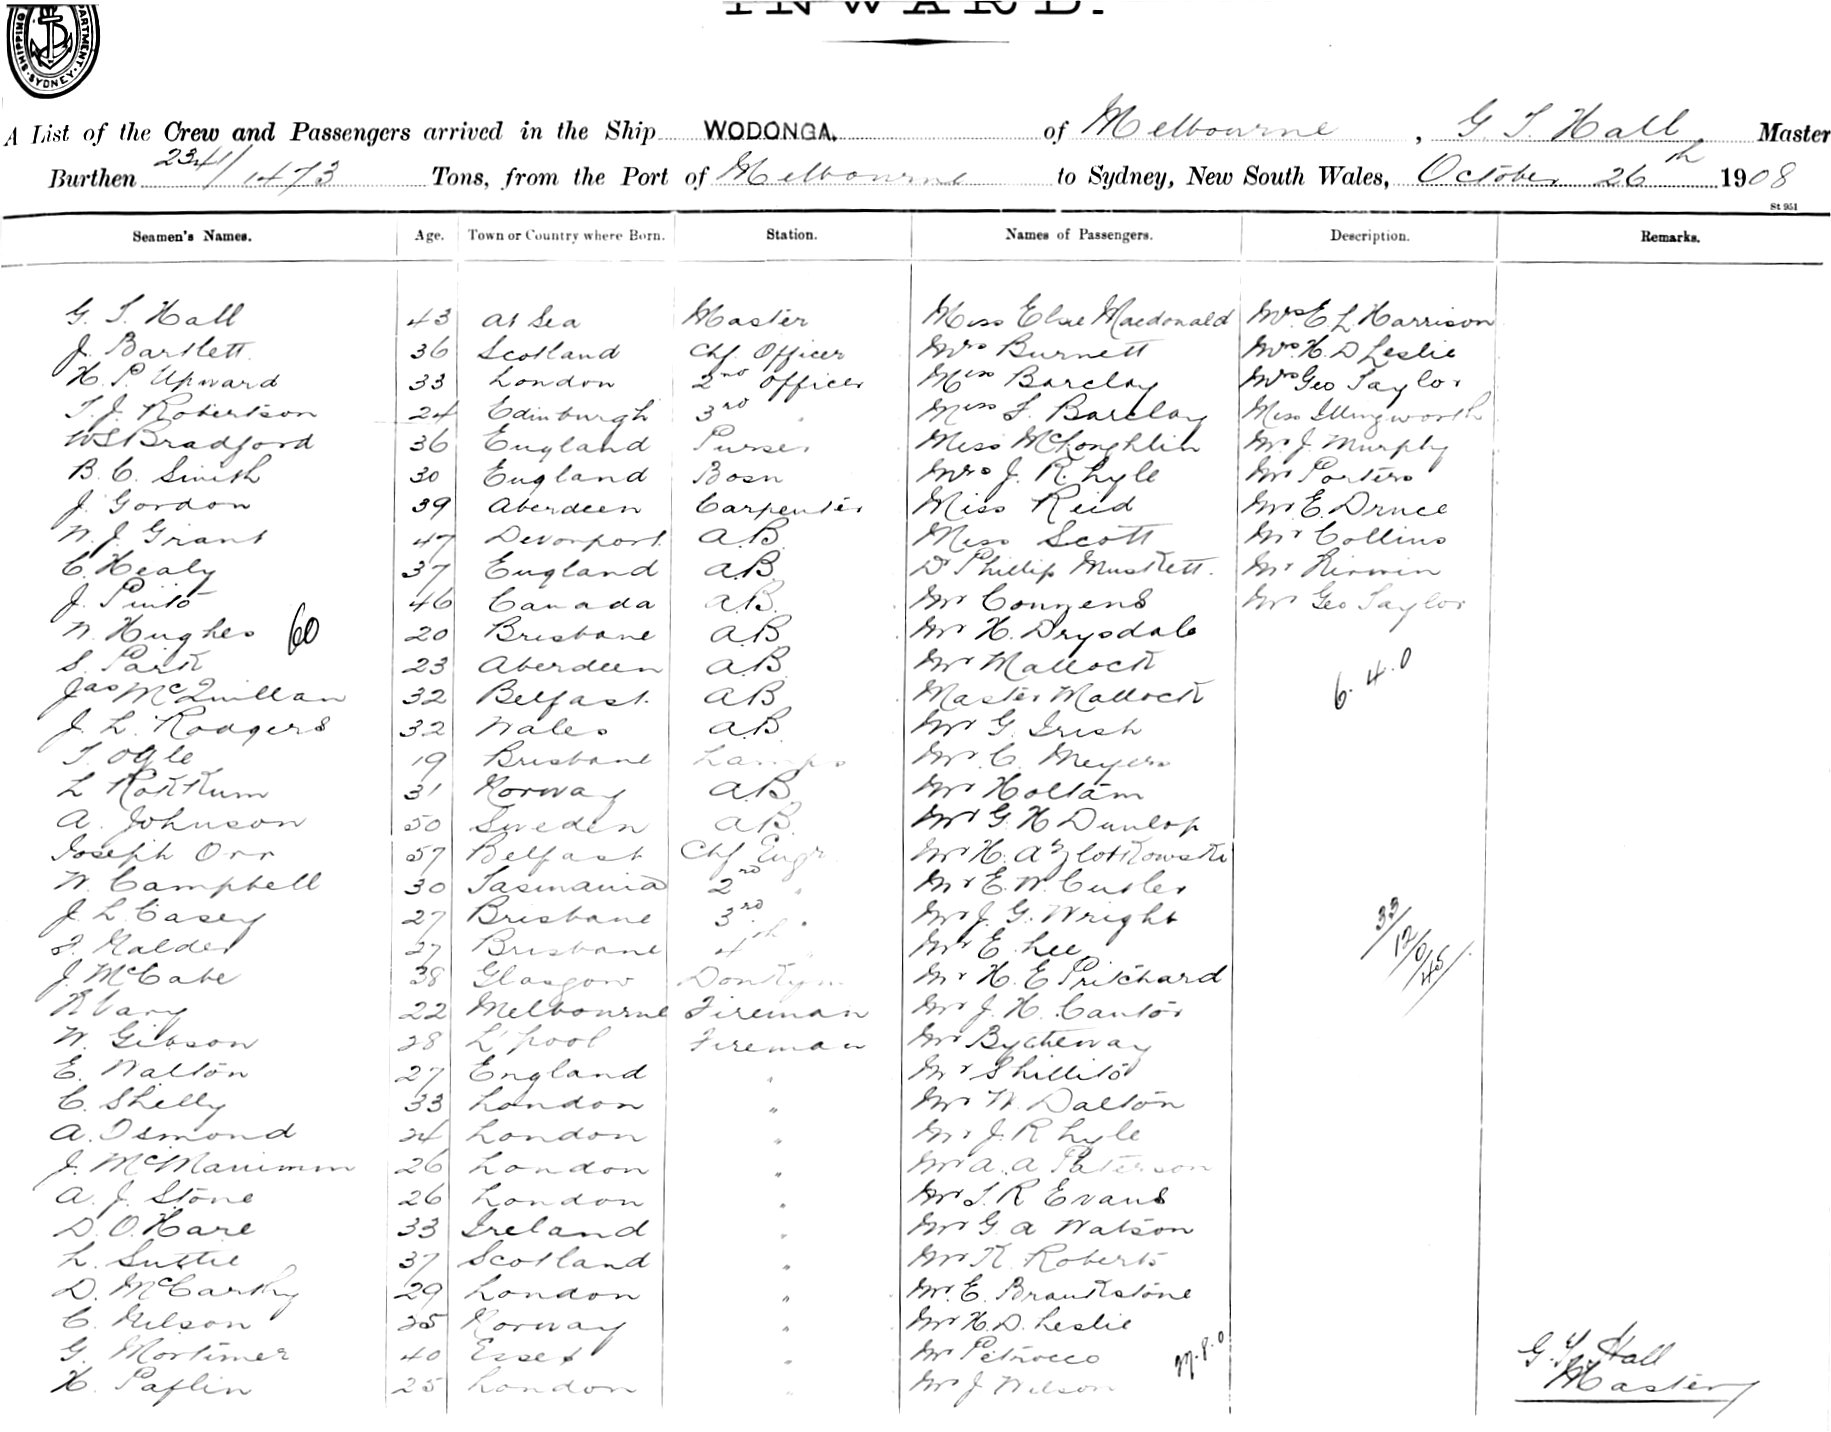 INWARD.
SHIPPING DEPARTMENT SYDNEY
A List of the Crew and Passengers arrived in the Ship WODONGA. of Melbourne, G. T. Hall, Master
Burthen 2341/1473 Tons, from the Port of Melbourne to Sydney, New South Wales, October 26th 1908
St 951
Seamen's Names. Age. Town or Country where Born. Station. Names of Passengers. Description. Remarks.
G. T. Hall 43 At Sea Master Miss Elsie Macdonald Mrs E. L. Harrison
J. Bartlett 36 Scotland Chf. Officer Mrs Burnett Mrs H. D Leslie
H. P. Upward 33 London 2nd Officer Miss Barclay Mrs Geo Taylor
T. J. Robertson 24 Edinburgh 3rd " Miss F. Barclay Miss Illingworth
W S Bradford 36 England Purser Miss McLoughlin Mr J. Murphy
B. C. Smith 30 England Bosn Mrs J. R. Lyle Mr Porters
J. Gordon 39 Aberdeen Carpenter Miss Reid Mr E. Druce
W. J. Grant 47 Devonport A.B. Miss Scott Mr Collins
C. Healy 37 England A.B. Dr Phillip Muskett. Mr Kirwin
J. Pinto 46 Canada A.B. Mr Couzens Mr Geo Taylor
W. Hughes 60 20 Brisbane A.B. Mr H. Drysdale
S. Park 23 Aberdeen A.B. Mr Mallock
Jas McQuillan 32 Belfast. AB Master Mallock 6. 4. 0
J. L. Rodgers 32 Wales A.B. Mr G. Irish
T. Ogle 19 Brisbane Lamps Mr C. Meyers
L Rokkum 31 Norway A.B. Mr Holtam
A. Johnson 50 Sweden A.B. Mr G. H Dunlop
Joseph Orr 57 Belfast Chf Engr Mr H. A Zlotkowski
W. Campbell 30 Tasmania 2nd " Mr E. W. Cutler
J. L. Casey 27 Brisbane 3rd " Mr J. G. Wright 33/12/0/45/
Nalder 27 Brisbane 4th " Mr E. Lee
J. McCabe 38 Glasgow Donkym Mr H. E Pritchard
R Vary 22 Melbourne Fireman Mr J. H. Cantor
W. Gibson 28 L'pool Fireman Mr Bytheway
E. Walton 27 England " Mr Shillito
C. Shelly 33 London " Mr W. Dalton
A. Osmond 24 London " Mr J. R Lyle
J. 26 London " Mr A. A Paterson
A. J. Stone 26 London " Mr T. R Evans
D. O'Hare 33 Ireland " Mr G. A Watson
L. Suttie 37 Scotland " Mr R. Roberts
D. McCarthy 29 London " Mr. E. Brankstone
C. Nilson 25 Norway " Mr H. D. Leslie
G. Mortimer 40 Essex " Mr Petrocco M. 8. 0
H. Paflin 25 London " Mr J Wilson
G. T. Hall
Master